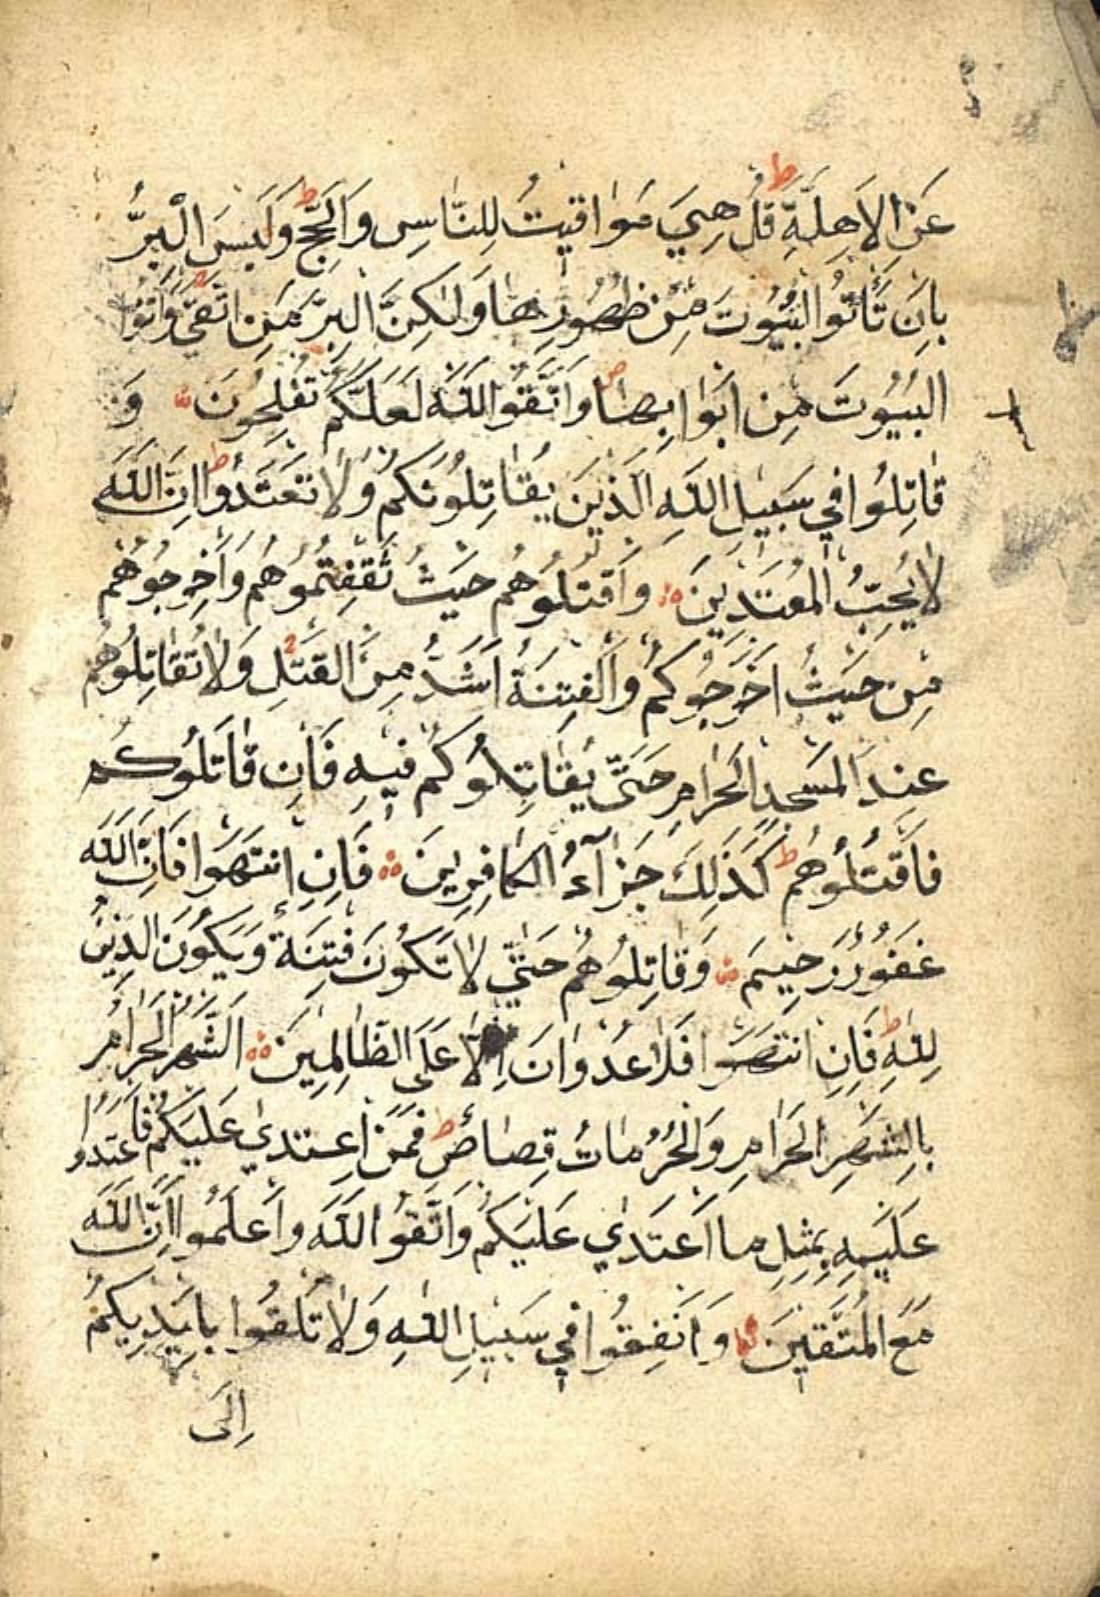 عَنِ الاَهِلَّةِ ط قُلْ هِيَ مَوَاقِيتُ لِلنَّاسِ وَالْحَجِّ ط وَلَيْسَ الْبِرُّ
بِاَنْ تَأْتُوا الْبُيُوتَ مِنْ ظُهُورِهَا وَلٰكِنَّ الْبِرَّ مَنِ اتَّقٰي وَأْتُوا
الْبُيُوتَ مِنْ اَبْوَابِهَا ص وَاتَّقُوا اللّٰهَ لَعَلَّكُمْ تُفْلِحُونَ وَ
قَاتِلُوا فِي سَبِيلِ اللّٰهِ الَّذِينَ يُقَاتِلُونَكُمْ وَلَا تَعْتَدُوا ط اِنَّ اللّٰهَ
لَا يُحِبُّ الْمُعْتَدِينَ وَاقْتُلُوهُمْ حَيْثُ ثَقِفْتُمُوهُمْ وَاَخْرِجُوهُمْ
مِنْ حَيْثُ اَخْرَجُوكُمْ وَالْفِتْنَةُ اَشَدُّ مِنَ الْقَتْلِ وَلَا تُقَاتِلُوهُمْ
عِنْدَ الْمَسْجِدِ الْحَرَامِ حَتَّى يُقَاتِلُوكُمْ فِيهِ فَاِنْ قَاتَلُوكُمْ
فَاقْتُلُوهُمْ ط كَذٰلِكَ جَزَآءُ الْكَافِرِينَ فَاِنِ انْتَهَوْا فَاِنَّ اللّٰهَ
غَفُورٌ رَحِيمٌ وَقَاتِلُوهُمْ حَتّٰي لَا تَكُونَ فِتْنَةٌ وَيَكُونَ الدِّينُ
لِلّٰهِ ط فَاِنِ انْتَهَوْا فَلَا عُدْوَانَ اِلَّا عَلَى الظَّالِمِينَ اَلشَّهْرُ الْحَرَامُ
بِالشَّهْرِ الْحَرَامِ وَالْحُرُمَاتُ قِصَاصٌ ط فَمَنِ اعْتَدٰي عَلَيْكُمْ فَاعْتَدُوا
عَلَيْهِ بِمِثْلِ مَا اعْتَدٰي عَلَيْكُمْ وَاتَّقُوا اللّٰهَ وَاعْلَمُوا اَنَّ اللّٰهَ
مَعَ الْمُتَّقِينَ وَاَنْفِقُوا فِي سَبِيلِ اللّٰهِ وَلَا تُلْقُوا بِاَيْدِيكُمْ
اِلَى